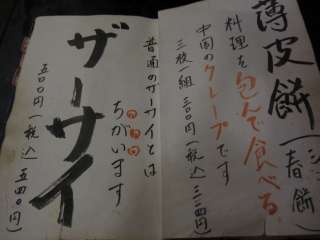 薄皮餅(春餅)
料理を包んで食べる
中国のクレープです
三枚一組 三〇〇円(税込 三二四円)
ザーサイ
普通のザーサイとは
ちがいます
五〇〇円(税込 五四〇円)